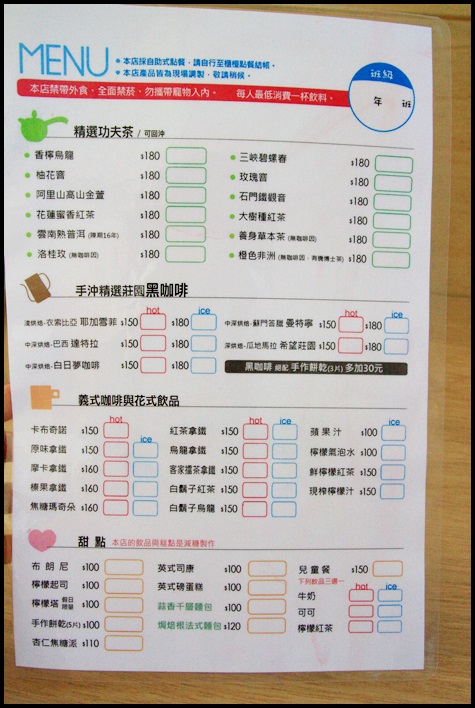 MENU
*本店採自助式點餐，請自行至櫃檯點餐結帳。
*本店產品皆為現場調製，敬請稍候。
本店禁帶外食、全面禁菸、勿攜帶寵物入內。 每人最低消費一杯飲料。
班級
年 班
精選功夫茶 / 可回沖
香檸烏龍 $180 三峽碧螺春 $180
柚花窨 $180 玫瑰窨 $180
阿里山高山金萱 $180 石門鐵觀音 $180
花蓮蜜香紅茶 $180 大樹種紅茶 $180
雲南熟普洱 (陳期16年) $180 養身草本茶 (無咖啡因) $180
洛桂玫 (無咖啡因) $180 橙色非洲 (無咖啡因，有機博士茶) $180
手沖精選莊園黑咖啡
hot ice hot ice
淺烘焙-衣索比亞 耶加雪菲 $150 $180 中深烘焙-蘇門答臘 曼特寧 $150 $180
中深烘焙-巴西 達特拉 $150 $180 深烘焙-瓜地馬拉 希望莊園 $150 $180
中深烘焙-白日夢咖啡 $150 $180 黑咖啡 搭配 手作餅乾(3片) 多加30元
義式咖啡與花式飲品
hot ice hot ice ice
卡布奇諾 $150 紅茶拿鐵 $150 蘋果汁 $100
原味拿鐵 $150 烏龍拿鐵 $150 檸檬氣泡水 $100
摩卡拿鐵 $160 客家擂茶拿鐵 $150 鮮檸檬紅茶 $150
榛果拿鐵 $160 白鬍子紅茶 $150 現榨檸檬汁 $150
焦糖瑪奇朵 $160 白鬍子烏龍 $150
甜點 本店的飲品與糕點是減糖製作
布朗尼 $100 英式司康 $100 兒童餐 $150
下列飲品三選一
檸檬起司 $100 英式磅蛋糕 $100 牛奶 hot ice
檸檬塔 假日限量 $100 蒜香千層麵包 $100 可可
手作餅乾(5片) $100 焗焙根法式麵包 $120 檸檬紅茶
杏仁焦糖派 $110